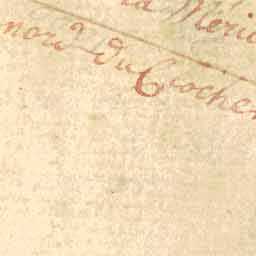 la Meri
nord du Crocher